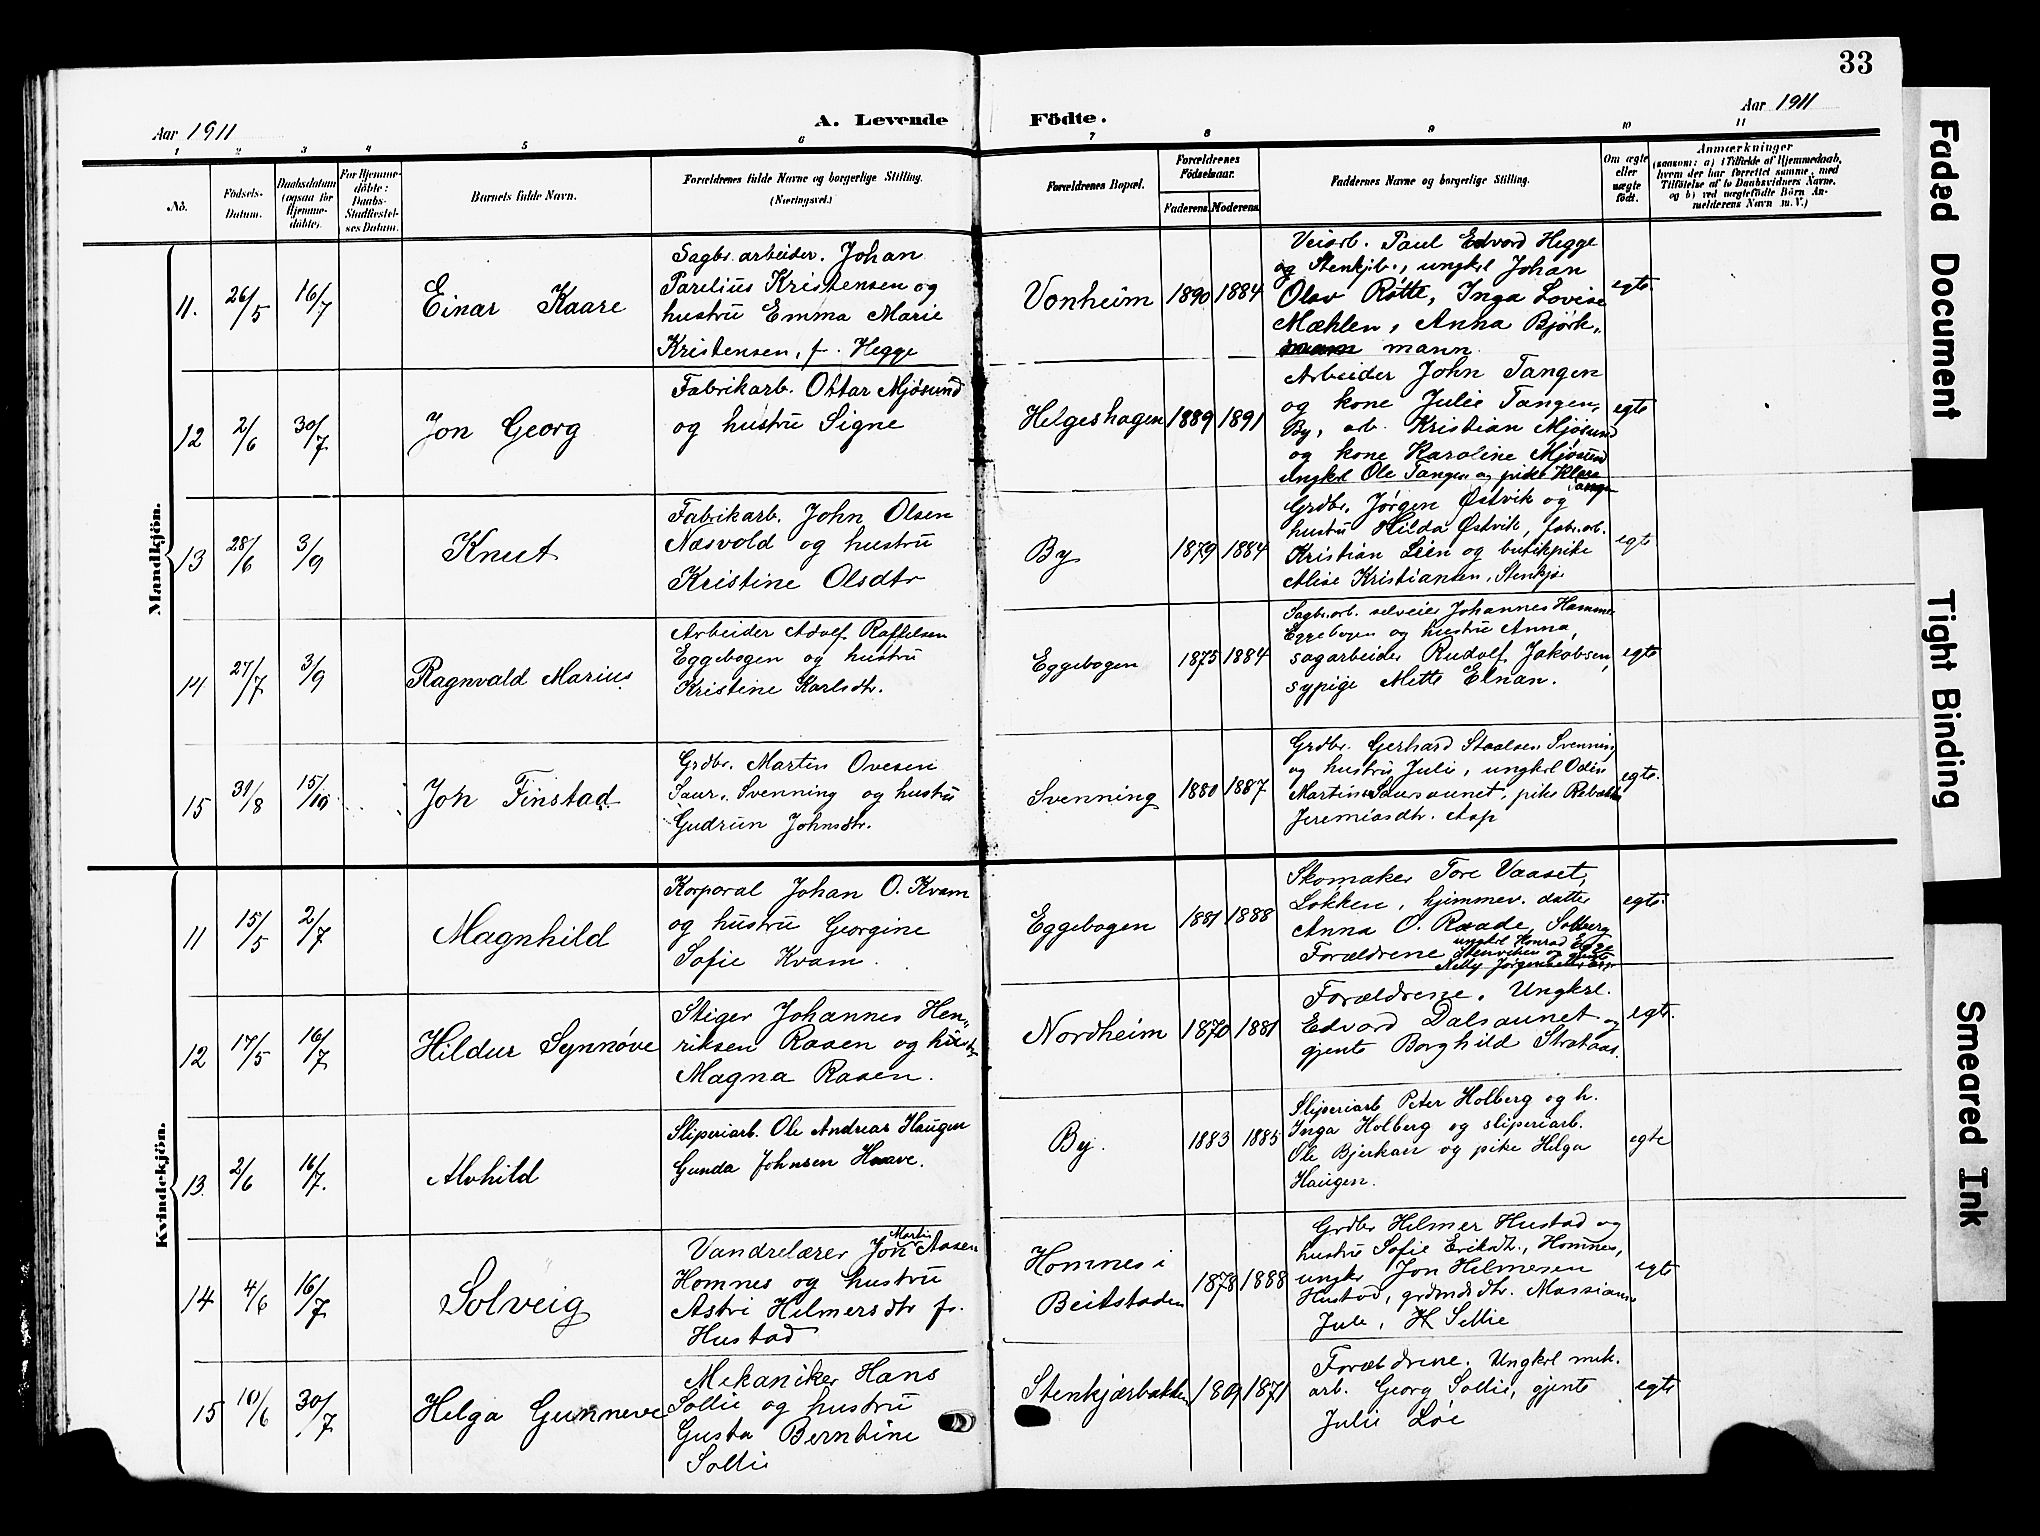 33
Aar 1911
A. Levende Födte.
Aar 1911
1 2 3 4 5 6 7 8 9 10 11
No.
Födsels-
Datum.
Daabsdatum
(ogsaa for
Hjemme-
döbte).
For Hjemme-
döbte:
Daabs-
Stadfæstel-
ses Datum.
Barnets fulde Navn.
Forældrenes fulde Navne og borgerlige Stilling.
(Næringsvei.)
Forældrenes Bopæl.
Forældrenes
Födselsaar.
Faderens. Moderens.
Faddernes Navne og borgerlige Stilling.
Om ægte
eller
uægte
født.
Anmærkninger
(saasom: a) i Tilfælde af Hjemmedaab,
hvem der har forrettet samme, med
Tilföielse af to Daabsvidners Navne,
og b) ved uægtefödte Börn An-
melderens Navn m. V.)
Mandkjön.
11. 26/5 16/7
Einar Kaare
Sagbr. arbeider. Johan
Parelius Kristensen og
hustru Emma Marie
Kristensen, f. Hegge
Vonheim 1890 1884
Veiarb. Paul Edvard Hegge
og Stenkjb., ungkrl Johan
Olav Røtte, Inga Lovise
Mæhlen, Anna Björk-
mann
egte
12 2/6 30/7
Jon Georg
Fabrikarb. Ottar Mjösund
og hustru Signe
Helgeshagen 1889 1891
Arbeider John Tangen
og kone Julie Tangen,
By, arb. Kristian Mjösund
og kone Karoline Mjösund
ungkrl Ole Tangen og pike Klara
Tangen
egte
13 28/6 3/9
Knut
Fabrikarb. John Olsen
Næsvold og hustru
Kristine Olsdtr
By 1879 1884
Grdbr. Jørgen Østvik og
hustru Hilda Østvik, fabr.arb.
Kristian Lein og butikpike
Alise Kristiansen, Stenkjær
egte
14 27/7 3/9
Ragnvald Marius
Arbeider Adolf Raffelsen
Eggebogen og hustru
Kristine Karlsdtr.
Eggebogen 1875 1884
Sagbr.arb. selveier Johannes Hammer
Eggebogen og hustru Anna,
sagarbeider Rudolf Jakobsen,
sypige Mette Elnan.
egte
15 31/8 15/10
Joh Finstad
Grdbr. Martin Ovesen
Saur. Svenning og hustru
Gudrun Johnsdtr.
Svenning 1880 1887
Grdbr. Gerhard Staalsen Svenning
og hustru Julie, ungkrl Odin
Martin Saursaunet, pike Rebekka
Jeremiasdtr. Asp
egte.
Kvindekjön.
11 15/5 2/7
Magnhild
Korporal Johan O. Kvam
og hustru Georgine
Sofie Kvam.
Eggebogen 1881 1888
Skomaker Tore Vaaset,
Løkken, hjemmev. datter
Anna O. Raade, Solberg
Forældrene ungkrl Konrad
Stenviken og gjente
Nelly Jørgensen
egte.
12 17/5 16/7
Hildur Synnöve
Stiger Johannes Hen-
riksen Raaen og hustru
Magna Raaen.
Nordheim 1870 1881
Forældrene. Ungkrl.
Edvard Dalsaunet og
gjente Borghild Strataas.
egte.
13. 2/6 16/7.
Alvhild
Sliperiarb. Ole Andreas Haugen
Gunda Johnsen Haave.
By. 1883 1885
Sliperiarb Peter Holberg og h.
Inga Holberg og sliperiarb.
Ole Bjerkan og pike Helga
Haugen.
egte
14 4/6 16/7
Solveig
Vandrelærer Jon Martin Aasen
Homnes og hustru
Astri Hilmersdtr f.
Hustad
Homnes i
Beitstaden 1878 1888
Grdbr Hilmer Hustad og
hustru Sofie Eriksdtr., Homnes,
ungkr Jon Hilmersen
Hustad, grdmdsdtr. Massianna
Jule, H Sellie
egte
15 10/6 30/7
Helga Gunneve
Mekaniker Hans
Sollie og hustru
Gusta Berntine
Sollie
Stenkjærbakken 1871
Forældrene. Ungkrl mek.
arb. Georg Sollie, gjente
Julie Löe
egte
Faded Document
Tight Binding
Smeared Ink